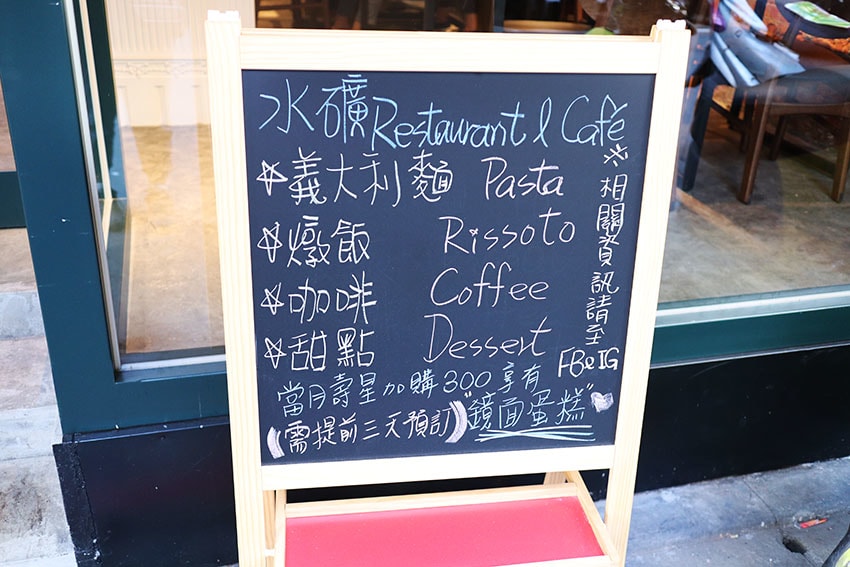 水礦 Restaurant & Café
☆義大利麵 Pasta
☆燉飯 Rissoto
☆咖啡 Coffee
☆甜點 Dessert
※相關資訊請至
FB&IG
當月壽星加購300享有
(需提前三天預訂) "鏡面蛋糕"